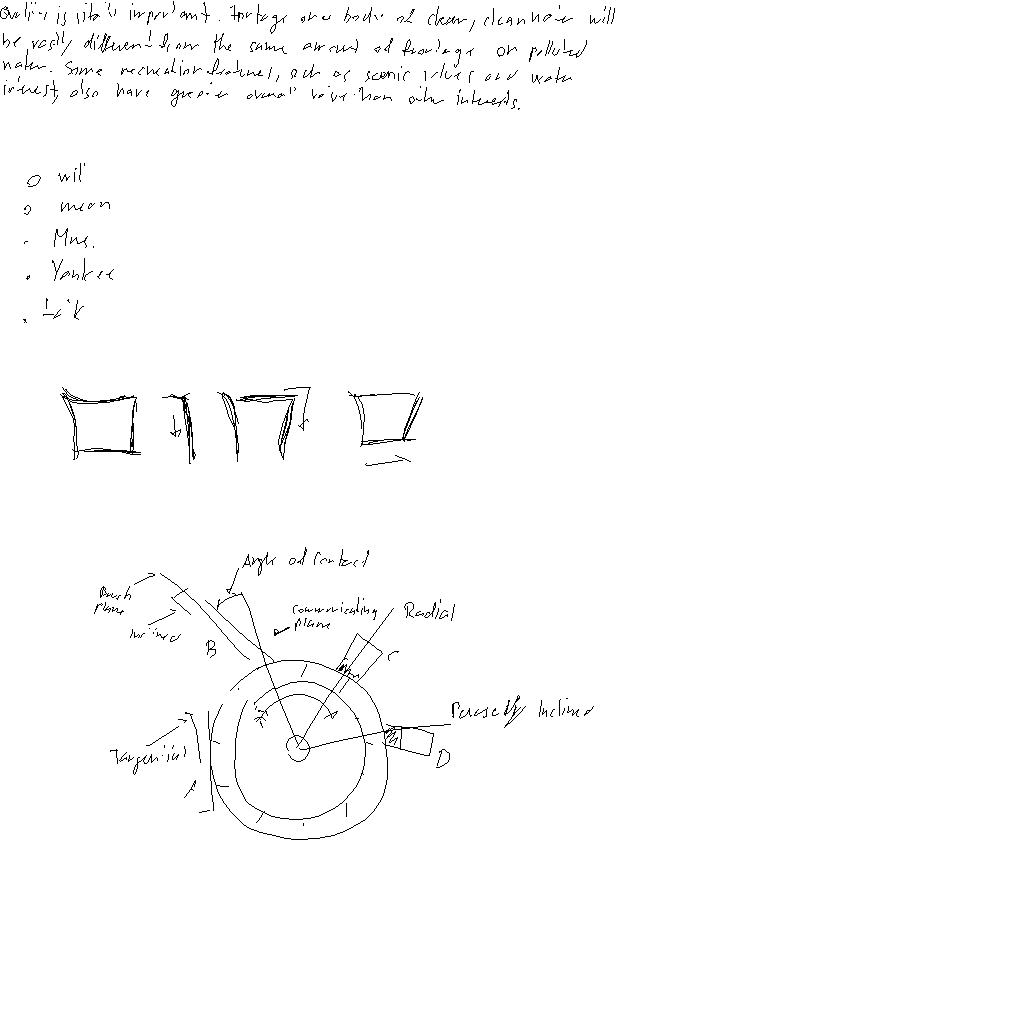 Quality is vitally important. Frontage on a body of clear, clean water will
be vastly different from the same amount of frontage on polluted
water. Some recreation features, such as scenic values and water
interest, also have greater overall value than other interests.
will
mean
Mrs.
Yankee
Angle of Contact
Brush
plane
Inclined
communicating
plane
Radial
B
C
Reversely Inclined
Tangential
D
A